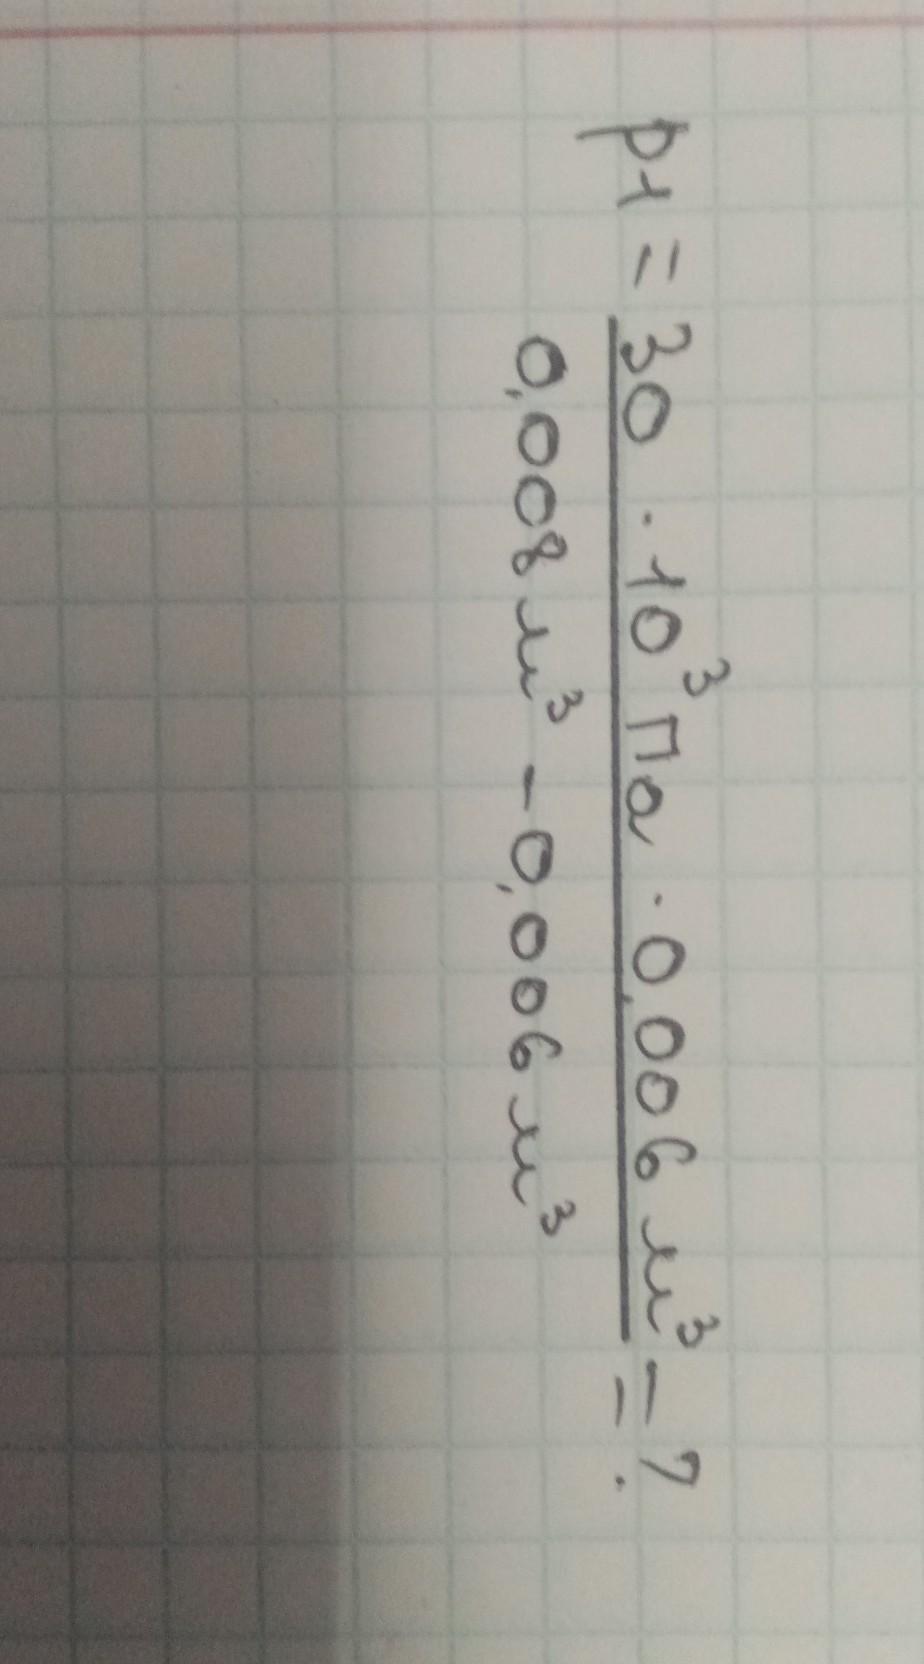 p1 = 30 · 10³ Па · 0,006 м³ = ?
0,008 м³ - 0,006 м³